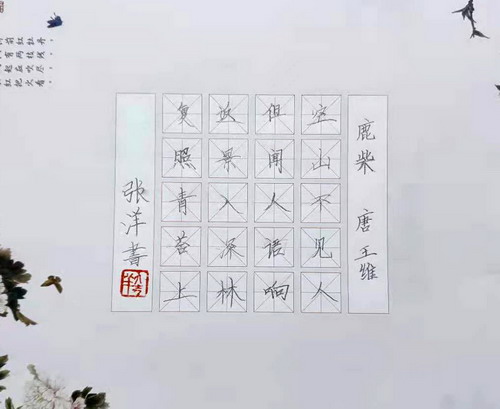 鹿柴 唐 王维
空山不见人
但闻人语响
返景入深林
复照青苔上
张洋書